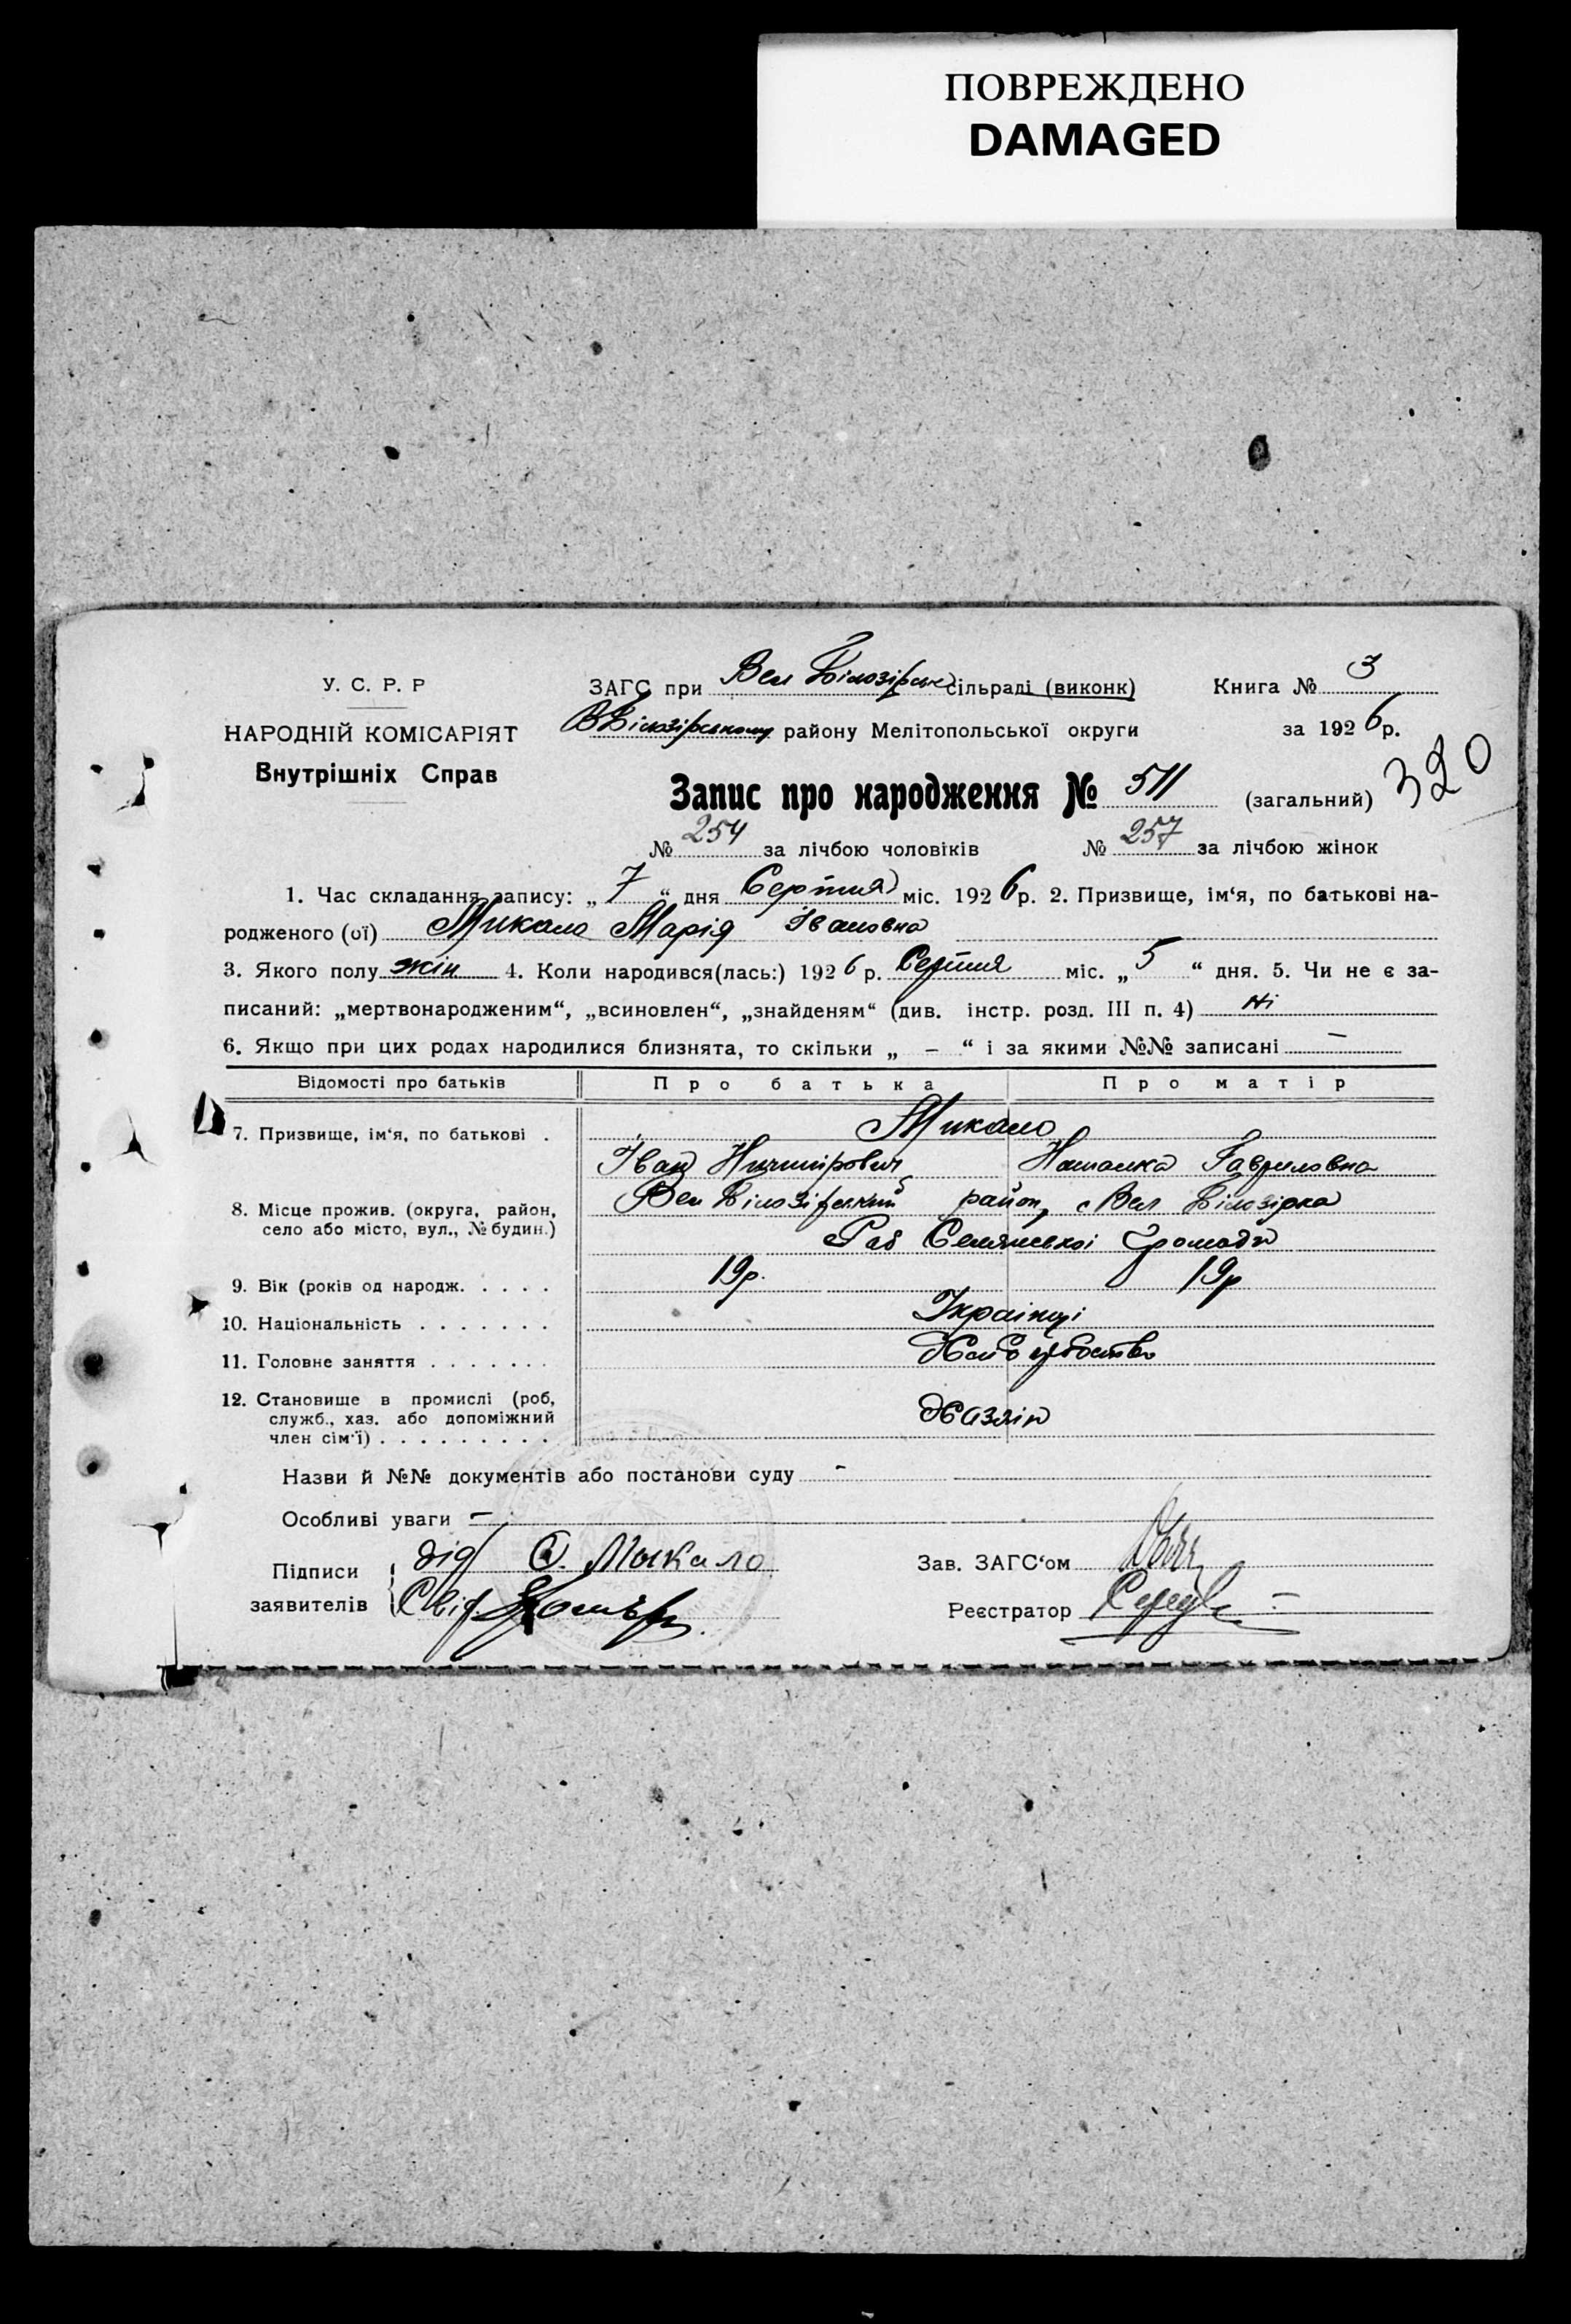 ПОВРЕЖДЕНО
DAMAGED
У. С. Р. Р
НАРОДНІЙ КОМІСАРІЯТ
Внутрішніх Справ
ЗАГС при Вел Білозірск сільраді (виконк) Книга № 3
ВБілозірському району Мелітопольської округи за 1926 р.
320
Запис про народження № 511 (загальний)
№ 254 за лічбою чоловіків № 257 за лічбою жінок
1. Час складання запису: „ 7 “ дня Серпня міс. 1926 р. 2. Призвище, ім‘я, по батькові на-
родженого (ої) Микало Марія Івановна
3. Якого полу жін 4. Коли народився(лась:) 1926 р. Серпня міс. „ 5 “ дня. 5. Чи не є за-
писаний: „мертвонародженим“, „всиновлен“, „знайденям“ (див. інстр. розд. III п. 4) Ні
6. Якщо при цих родах народилися близнята, то скільки „ – “ і за якими №№ записані –
Відомості про батьків Про батька Про матір
7. Призвище, ім‘я, по батькові . Микало
Іван Ничипірович Наталка Гавриловна
8. Місце прожив. (округа, район, село або місто, вул., № будин.) Вел Білозірський район, с Вел Білозірка
Селянської Громади
9. Вік (років од народж. . . . . 19р. 19р
10. Національність . . . . . . . Українці
11. Головне заняття . . . . . . . Хліборобство
12. Становище в промислі (роб, служб., хаз. або допоміжний член сім‘ї) . . . . . . . . . Хазяїн
Назви й №№ документів або постанови суду -
Особливі уваги –
Підписи заявителів дід Микало
Свід
Зав. ЗАГС‘ом
Реєстратор